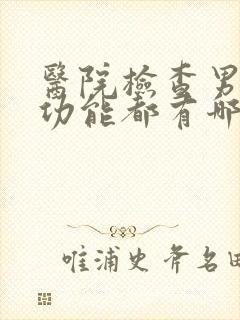 醫院檢查男
功能都有哪
唯浦史斧名田